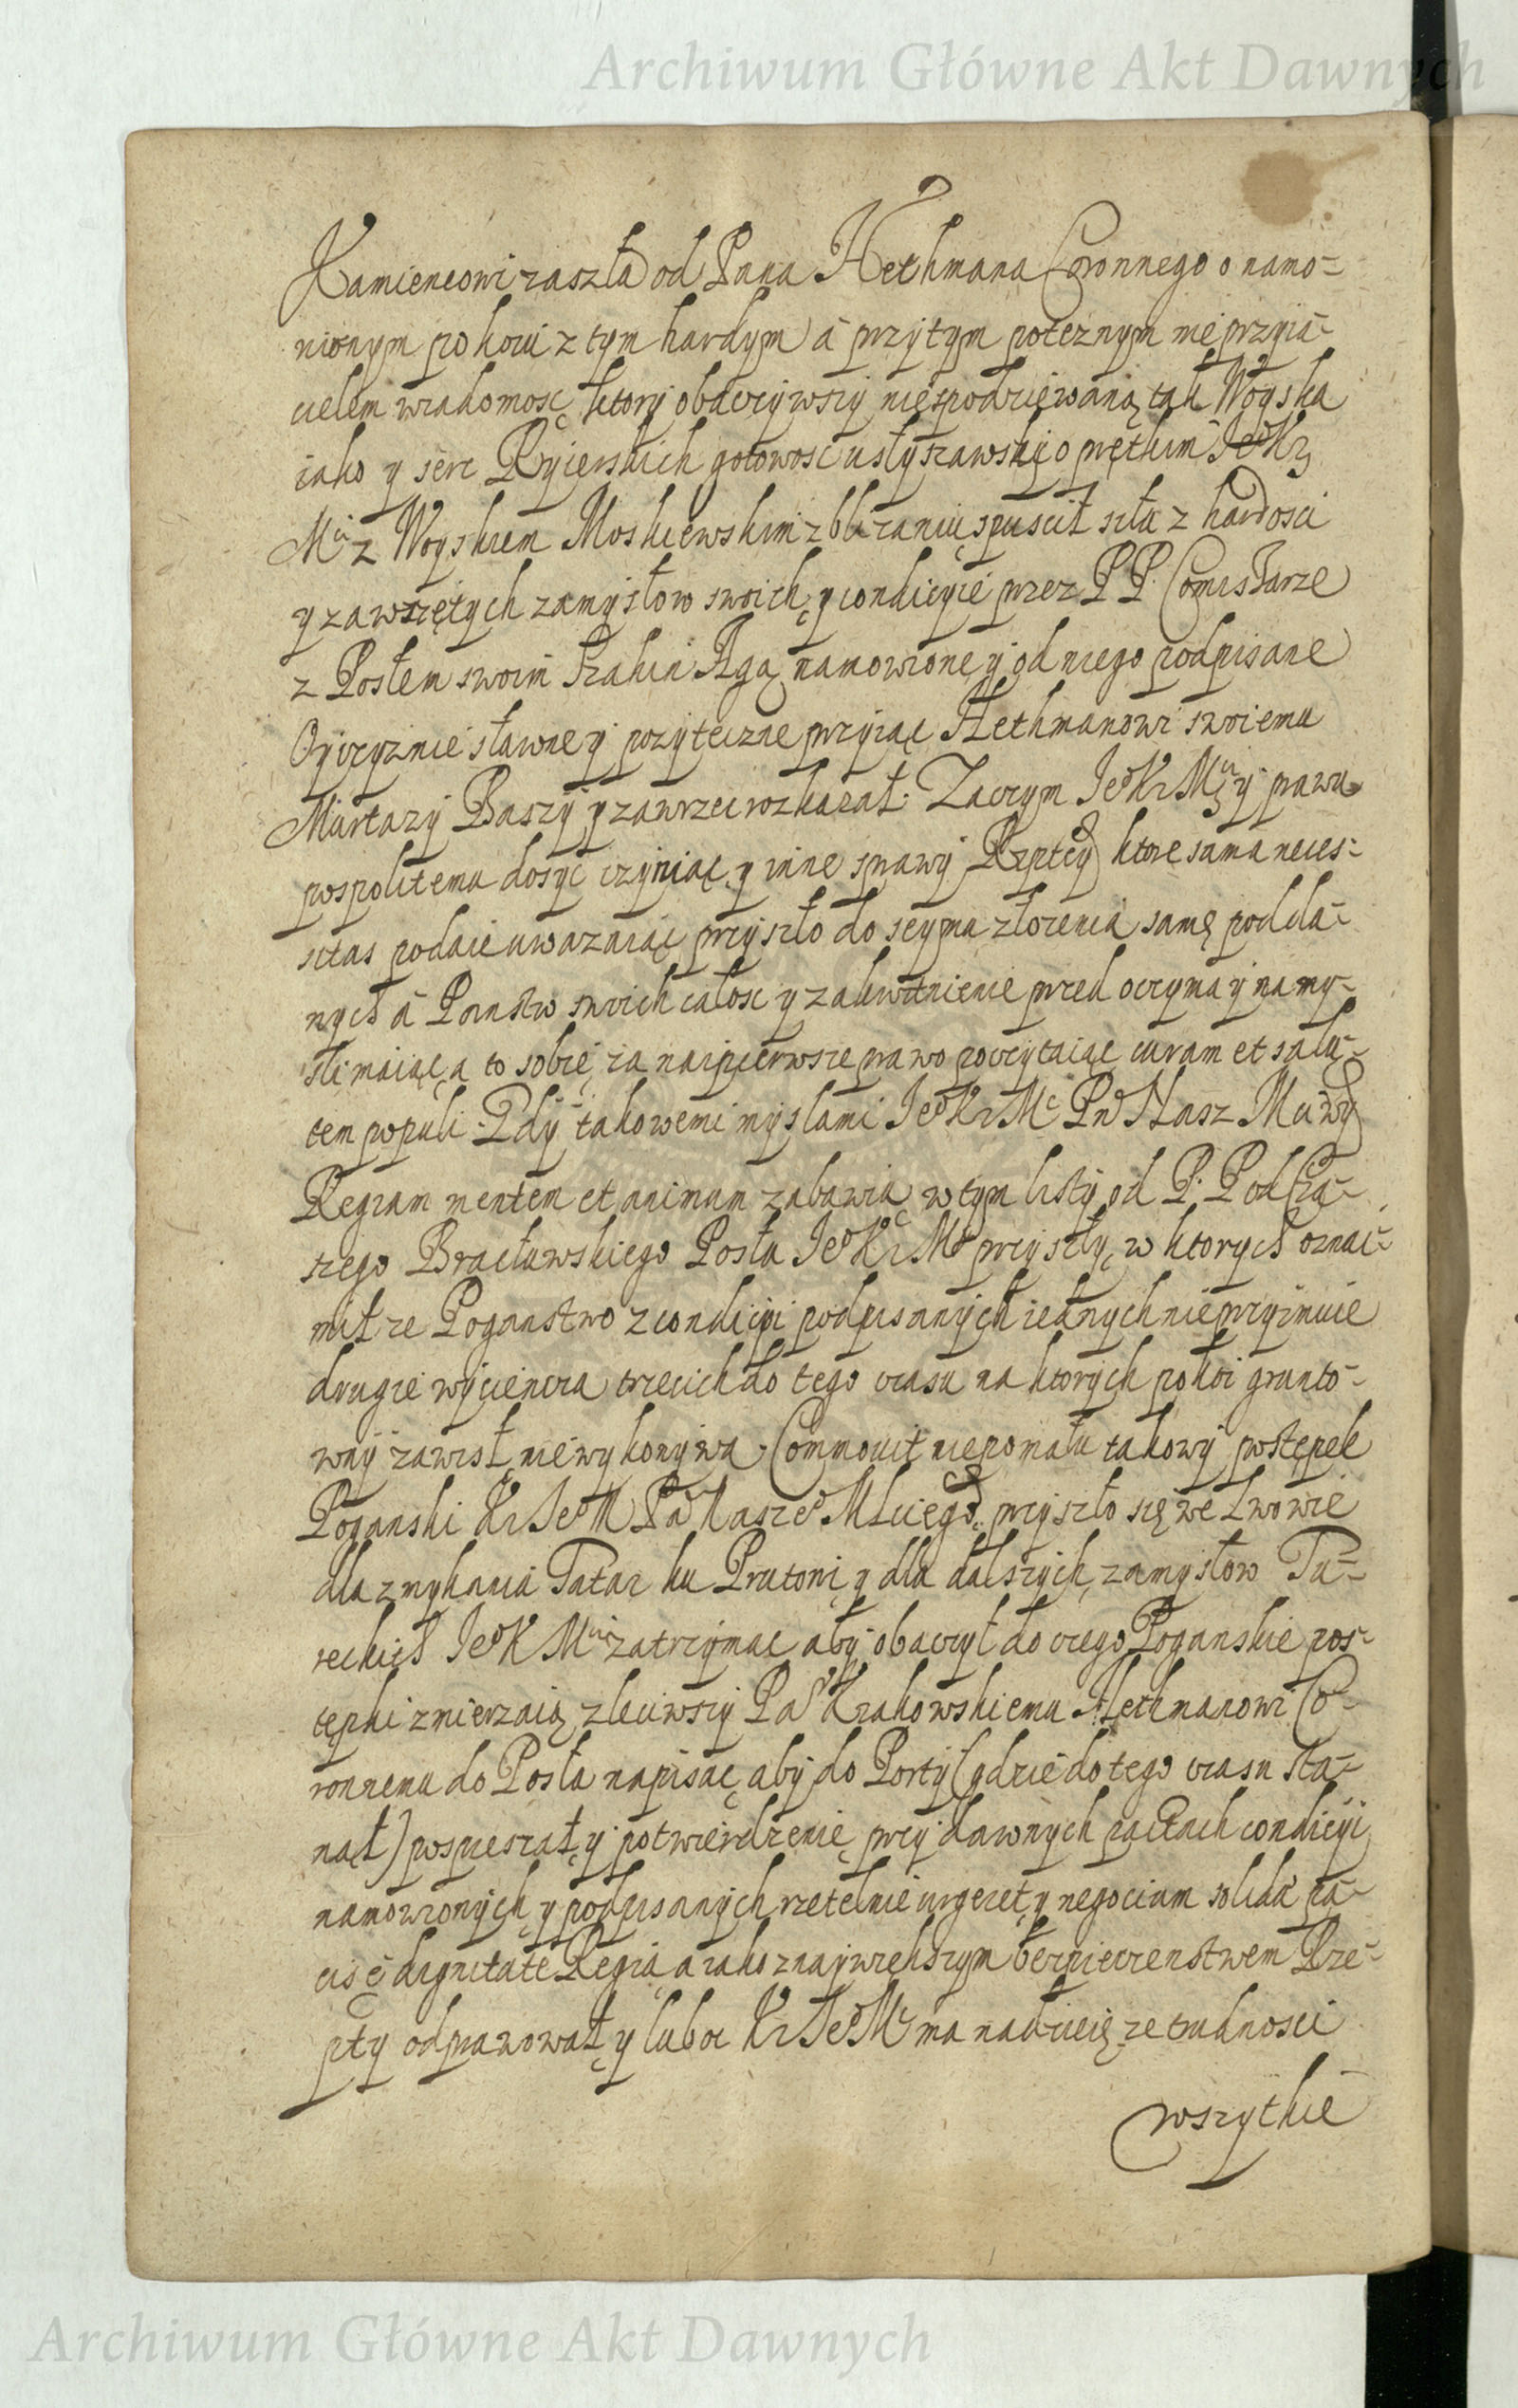 Archiwum Główne Akt Dawnych
Kamiencowi zaszła od Pana Hethmana Coronnego o namo-
nionym pokoiu z tym hardym a przytym poteznym nieprzyia-
cielem wiadomosc, ktory obaczywszy niespodziewaną tak Woyska
iako y serc Rycerskich gotowosc usłyszawszy o prętkim Ieo Kr
Mci z Woyskiem Moskiewskim zblizaniu, spuscił siła z hardosci
y zawziętych zamysłow swoich, y condicyie przez PP. Comissarze
z Posłem swoim Szahin Agą namowione y od niego podpisane
Oyczyznie sławne y pozyteczne przyiąc Hethmanowi swoiemu
Murtazy Baszy y zawrzec rozkazał. Zaczym Ieo Kr Mci y prawu
pospolitemu dosyc czyniąc y inne sprawy Rzptey ktore sama neces-
sitas podaie uwazaiąc przyszło do seymu złozenia, samę podda-
nych a Panstw swoich całosc y zakwitnienie przed oczyma y na my-
sli maiąc, a to sobie za naipierwsze prawo poczytaiąc curam et salu-
tem populi. Gdy takowemi myslami Ieo Kr Mc Pn Nasz Mciwy
Regiam mentem et animum zabawia, w tym listy od P. Podcza-
szego Bracławskiego Posła Ieo Kr Mci przyszły, w ktorych oznay-
mił ze Poganstwo z condicyi podpisanych iednych nie przyimuie
drugie wyciencza trzecich do tego czasu na ktorych pokoi grunto-
wny zawisł nie wykonywa. Commovit niepomału takowy postępek
Poganski Kr Ieo M Pa Naszeo Mciego, przyszło się we Lwowie
dla zmykania Tatar ku Prutowi, y dla dalszych zamysłow Tu-
reckich Ieo K Mci zatrzymac aby obaczył do czego Poganskie pos-
tępki zmierzaią, zleciwszy Pa Krakowskiemu Hethmanowi Co-
ronnemu do Posła napisac, aby do Porty (gdzie do tego czasu sta-
nął) pospieszał, y potwierdzenie, przy dawnych pactach condicyi
namowionych, y podpisanych rzetelnie urgeret, y negocium solida pa-
cis ę dignitate Regia, a iako z naywiększym bezpieczenstwem Rze-
pty odprawował, y luboc Kr Ieo Mc ma nadzieię, ze trudnosci
wszytkie
Archiwum Główne Akt Dawnych